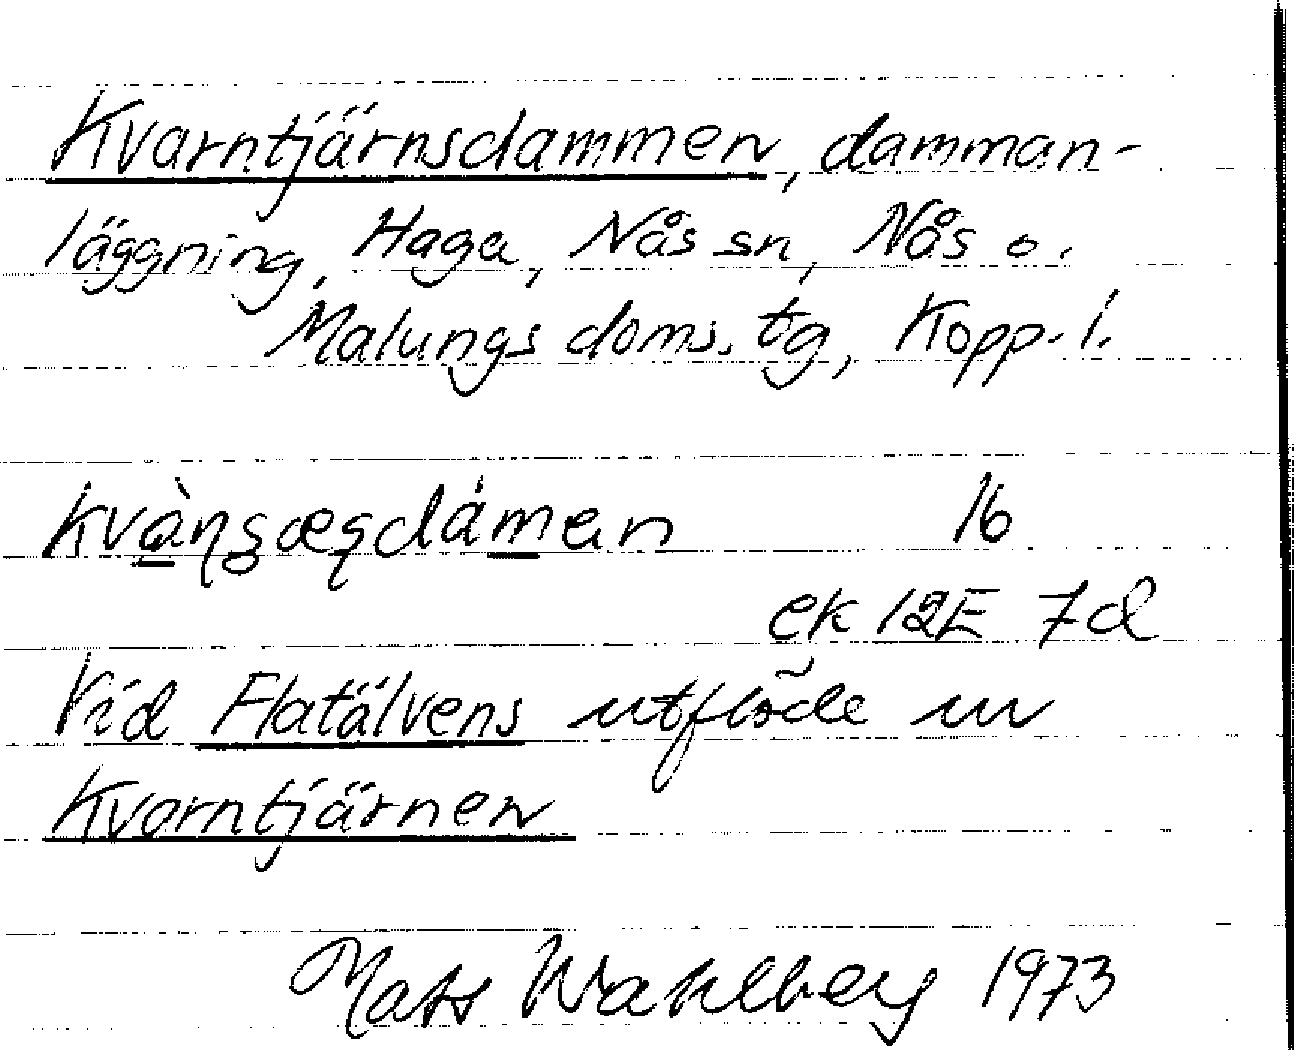 Kvarntjärnsdammen, damman-
läggning, Haga, Nås sn, Nås o.
Malungs doms. tg, Kopp. l.
16
ek 12E 7d
Vid Flatälvens utflöde ur
Kvarntjärnen
Mats Wahlberg 1973